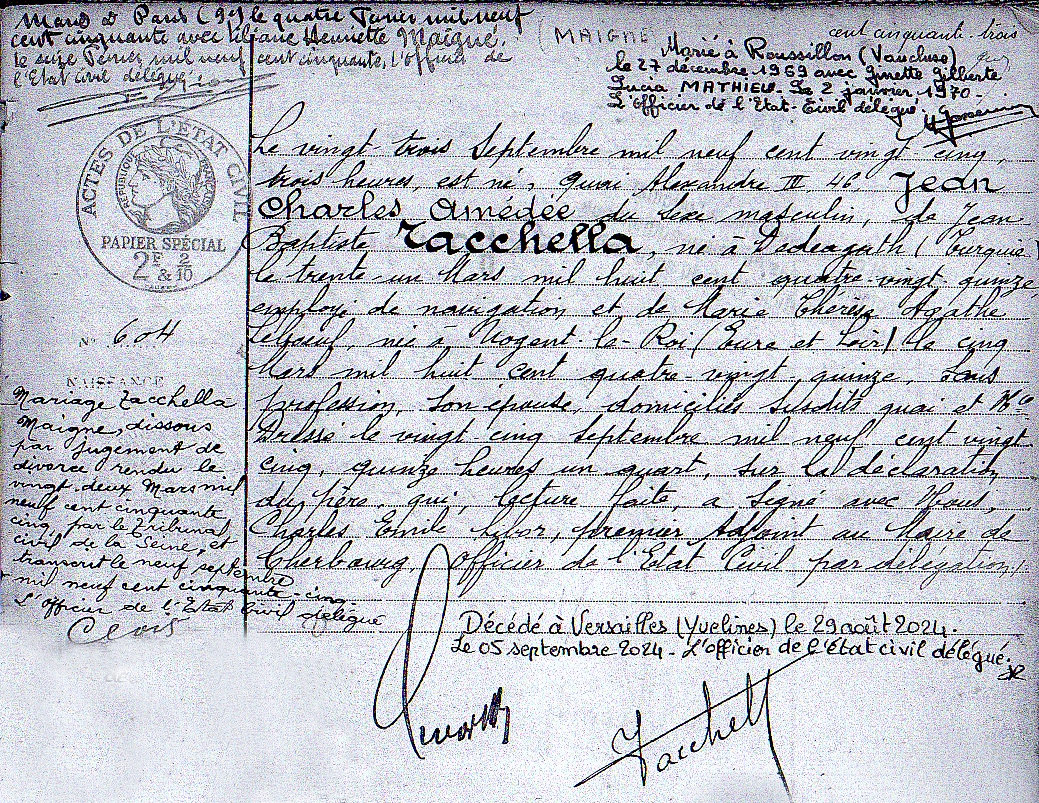 Marié à Paris (9e) le quatre Janvier mil neuf
cent cinquante avec Liliane Henriette Maigné.
le seize Janvier mil neuf cent cinquante, L'officier de
l'Etat civil délégué,
(MAIGNE
cent cinquante-trois
Marié à Roussillon (Vaucluse)
le 27 décembre 1969 avec Ginette Gilberte
Lucia MATHIEU. Le 2 janvier 1970 -
L'Officier de l'Etat-Civil délégué.
ACTES DE L'ÉTAT CIVIL
RÉPUBLIQUE FRANÇAISE
PAPIER SPÉCIAL
2F 2
& 10
No 604
NAISSANCE
Le vingt trois Septembre mil neuf cent vingt cinq,
trois heures, est né, quai Alexandre III 46 Jean
Charles Amédée du sexe masculin, de Jean
Baptiste Tacchella, né à Dedeagath (Turquie)
le trente-un Mars mil huit cent quatre-vingt-quinze,
employé de navigation et de Marie Thérèse Agathe
née à Nogent-le-Roi (Eure et Loir) le cinq
Mars mil huit cent quatre-vingt, quinze, sans
profession, son épouse, domiciliés susdits quai et No
Dressé le vingt cinq Septembre mil neuf cent vingt
cinq, quinze heures un quart, sur la déclaration
du père, qui, lecture faite, a signé avec Nous,
Charles Emile premier Adjoint au Maire de
Cherbourg, Officier de l'Etat Civil par délégation.
Mariage Tacchella
Maigne, dissous
par jugement de
divorce rendu le
vingt-deux Mars mil
neuf cent cinquante
cinq par le Tribunal
civil de la Seine, et
transcrit le neuf septembre
mil neuf cent cinquante-cinq
L'officier de l'Etat Civil délégué
Décédé à Versailles (Yvelines) le 29 août 2024.
Le 05 septembre 2024 - L'officier de l'état civil délégué.
Tacchell